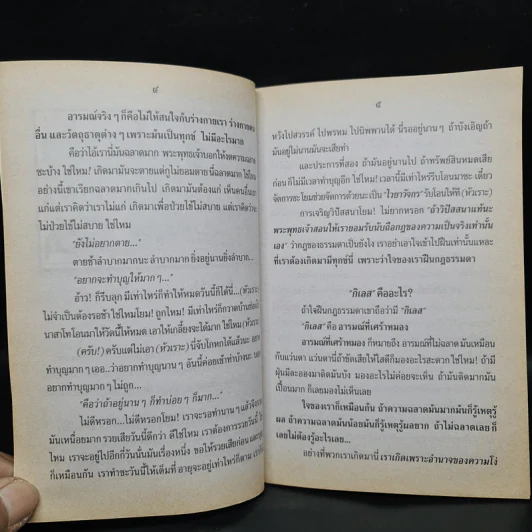 ๔
อารมณ์จริง ๆ ก็คือไม่ให้สนใจกับร่างกายเรา ร่างกายคน
อื่น และวัตถุธาตุต่าง ๆ เพราะมันเป็นทุกข์ ไม่มีอะไรมาก
คือว่าไอ้เรานี่มันฉลาดมาก พระพุทธเจ้าบอกให้ลดความฉลาด
ซะบ้าง ใช่ไหม! เกิดมามันจะตายแต่กูไม่ยอมตาย นี่ฉลาดมาก ใช่ไหม
อย่างนี้เขาเรียกฉลาดมากเกินไป เกิดมามันต้องแก่ เห็นคนอื่นแก่
แก่แต่เราคิดว่าเราไม่แก่ เกิดมาเพื่อป่วยไข้ไม่สบาย แต่เราคิดว่าจะ
ไม่ป่วยไข้ไม่สบาย ใช่ไหม
"ยังไม่อยากตาย..."
ตายช้าลำบากมากนะ ลำบากมาก ยิ่งอยู่นานยิ่งลำบาก..
"อยากจะทำบุญให้มาก ๆ..."
อ้าว! ก็รีบลุก มีเท่าไหร่ก็ทำให้หมดวันนี้ก็ได้นี่...(หัวเราะ)
ไม่จำเป็นต้องรอช้า ใช่ไหมโยม! ถูกไหม! มีเท่าไหร่ก็กวาดบ้านขายไร่
นาสาโทโอนมาให้วัดนี้ให้หมด เอาให้เกลี้ยงจะได้มาก ใช่ไหม (หัวเราะ)
(ครับ!) ครับแต่ไม่เอา (หัวเราะ) นี่จับโกหกได้แล้วนะ อยาก
ทำบุญมาก ๆ เออ..ว่าอยากทำบุญนาน ๆ อันนี้ค่อยเข้าท่าบ้างนะ บอก
อยากทำบุญมาก ๆ ไม่ถูก...
"คือว่าถ้าอยู่นาน ๆ ก็ทำบ่อย ๆ ก็มาก..."
ไม่ดีหรอก...ไม่ดีหรอกโยม! เราจะรอทำนาน ๆ
มันเหนื่อยมาก รวยเสียวันนี้ดีกว่า ดีใช่ไหม เราต้องการรวยวันนี้
ไหม เราจะอยู่ไปอีกกี่วันนั่นมันเรื่องหนึ่ง ขอให้รวยเสียก่อน
ก็เหมือนกัน เราทำซะวันนี้ให้เต็มที่ อายุจะอยู่เท่าไหร่ก็ตาม
๕
หวังไปสวรรค์ ไปพรหม ไปนิพพานได้ นี่รออยู่นาน ๆ ถ้าบังเอิญถ้า
มันอยู่ไม่นานมันจะเสียท่า
และประการที่สอง ถ้ามันอยู่นานไป ถ้าทรัพย์สินหมดเสีย
ก่อน ก็ไม่มีเวลาทำบุญอีก ใช่ไหม! เวลานี้มีเท่าไหร่รีบโอนมาซะ เดี๋ยว
จัดการซะโยมช่วยจัดการด้วยนะเป็น "ไวยาวัจกร" รับโอนให้ที (หัวเราะ)
การเจริญวิปัสสนาโยม! ไม่ยากหรอก "ถ้าวิปัสสนาแท้นะ
พระพุทธเจ้าสอนให้เรายอมรับนับถือกฎของความเป็นจริงเท่านั้น
เอง" ว่ากฎของธรรมดาเป็นยังไง เราอย่าเอาใจเข้าไปฝืนเท่านั้นแหละ
ที่เราต้องเกิดมามีทุกข์นี่ เพราะว่าใจของเราฝืนกฎธรรมดา
"กิเลส" คืออะไร?
ถ้าใจฝืนกฎธรรมดาเขาถือว่ามี "กิเลส"
"กิเลส" คือ อารมณ์ที่เศร้าหมอง
อารมณ์ที่เศร้าหมอง ก็หมายถึง อารมณ์ที่ไม่ฉลาด มันเหมือน
กับแว่นตา แว่นตานี่ถ้าขัดเสียให้ใสดีก็มองอะไรสะดวก ใช่ไหม! ถ้ามี
ฝุ่นมีละอองมาติดมันบัง มองอะไรไม่ค่อยจะเห็น ถ้ามันติดมากมัน
เปื้อนมาก ก็เลยมองไม่เห็นเลย
ใจของเราก็เหมือนกัน ถ้าความฉลาดมันมากมันก็รู้เหตุรู้
ผล ถ้าความฉลาดมันน้อยมันก็รู้เหตุรู้ผลยาก ถ้าไม่ฉลาดเลย ก็
เลยไม่ต้องรู้อะไรเลย...
อย่างที่พวกเราเกิดมานี่ เราเกิดเพราะอำนาจของความโง่